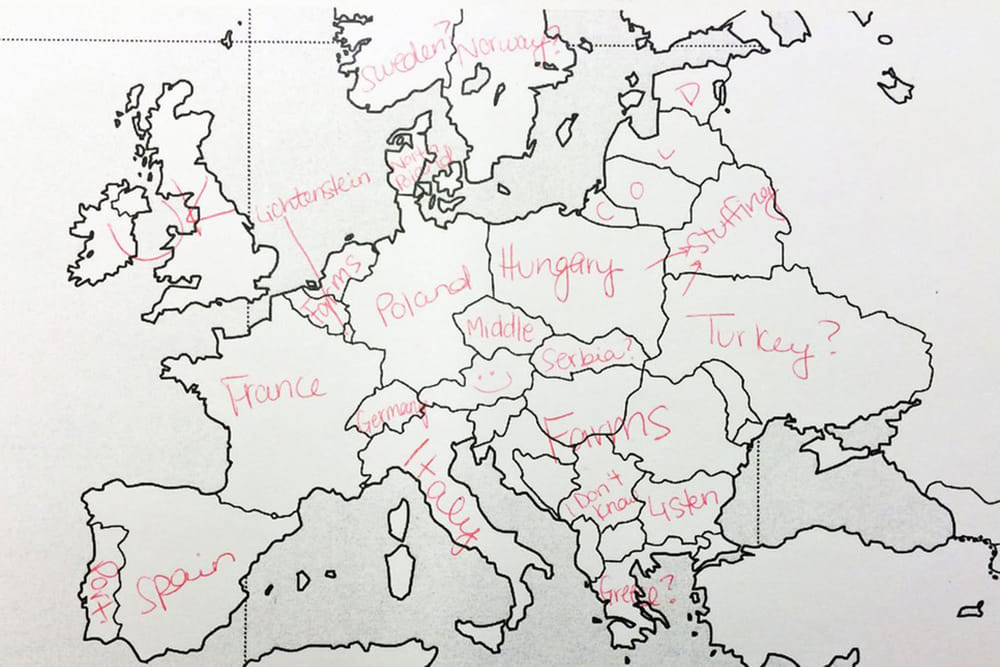 Sweden?
Norway?
D
North
Poland
Lichtenstein
U
O
C
Stuffing
Farms
Poland
Hungary
Middle
Turkey?
Serbia?
France
Germany
Farms
Italy
I Don't
Know
Listen
Port
Spain
Greese?